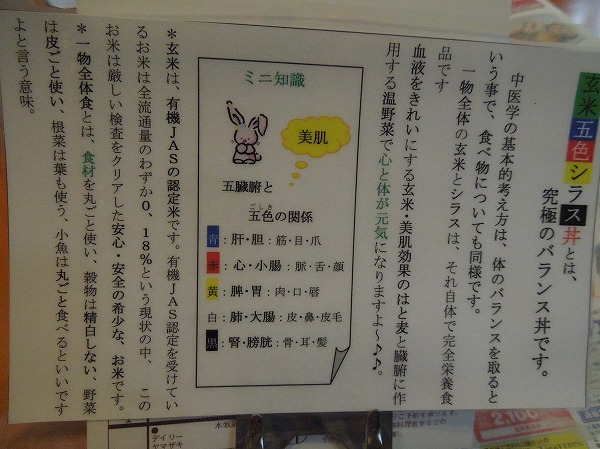 玄米五色シラス丼とは、
究極のバランス丼です。
中医学の基本的考え方は、体のバランスを取ると
いう事で、食べ物についても同様です。
一物全体の玄米とシラスは、それ自体で完全栄養食
品です
血液をきれいにする玄米・美肌効果のはと麦と臓腑に作
用する温野菜で心と体が元気になりますよ～♪♪。
ミニ知識
美肌
五臓腑と
ごしき
五色の関係
青:肝・胆:筋・目・爪
赤:心・小腸:脈・舌・顔
黄:脾・胃:肉・口・唇
白:肺・大腸:皮・鼻・皮毛
黒:腎・膀胱:骨・耳・髪
*玄米は、有機JASの認定米です。有機JAS認定を受けてい
るお米は全流通量のわずか0、18%という現状の中、 この
お米は厳しい検査をクリアした安心・安全の希少な、お米です。
*一物全体食とは、食材を丸ごと使い、穀物は精白しない、野菜
は皮ごと使い、根菜は葉も使う、小魚は丸ごと食べるといいです
よと言う意味。
デイリー
ヤマザキ
2,100